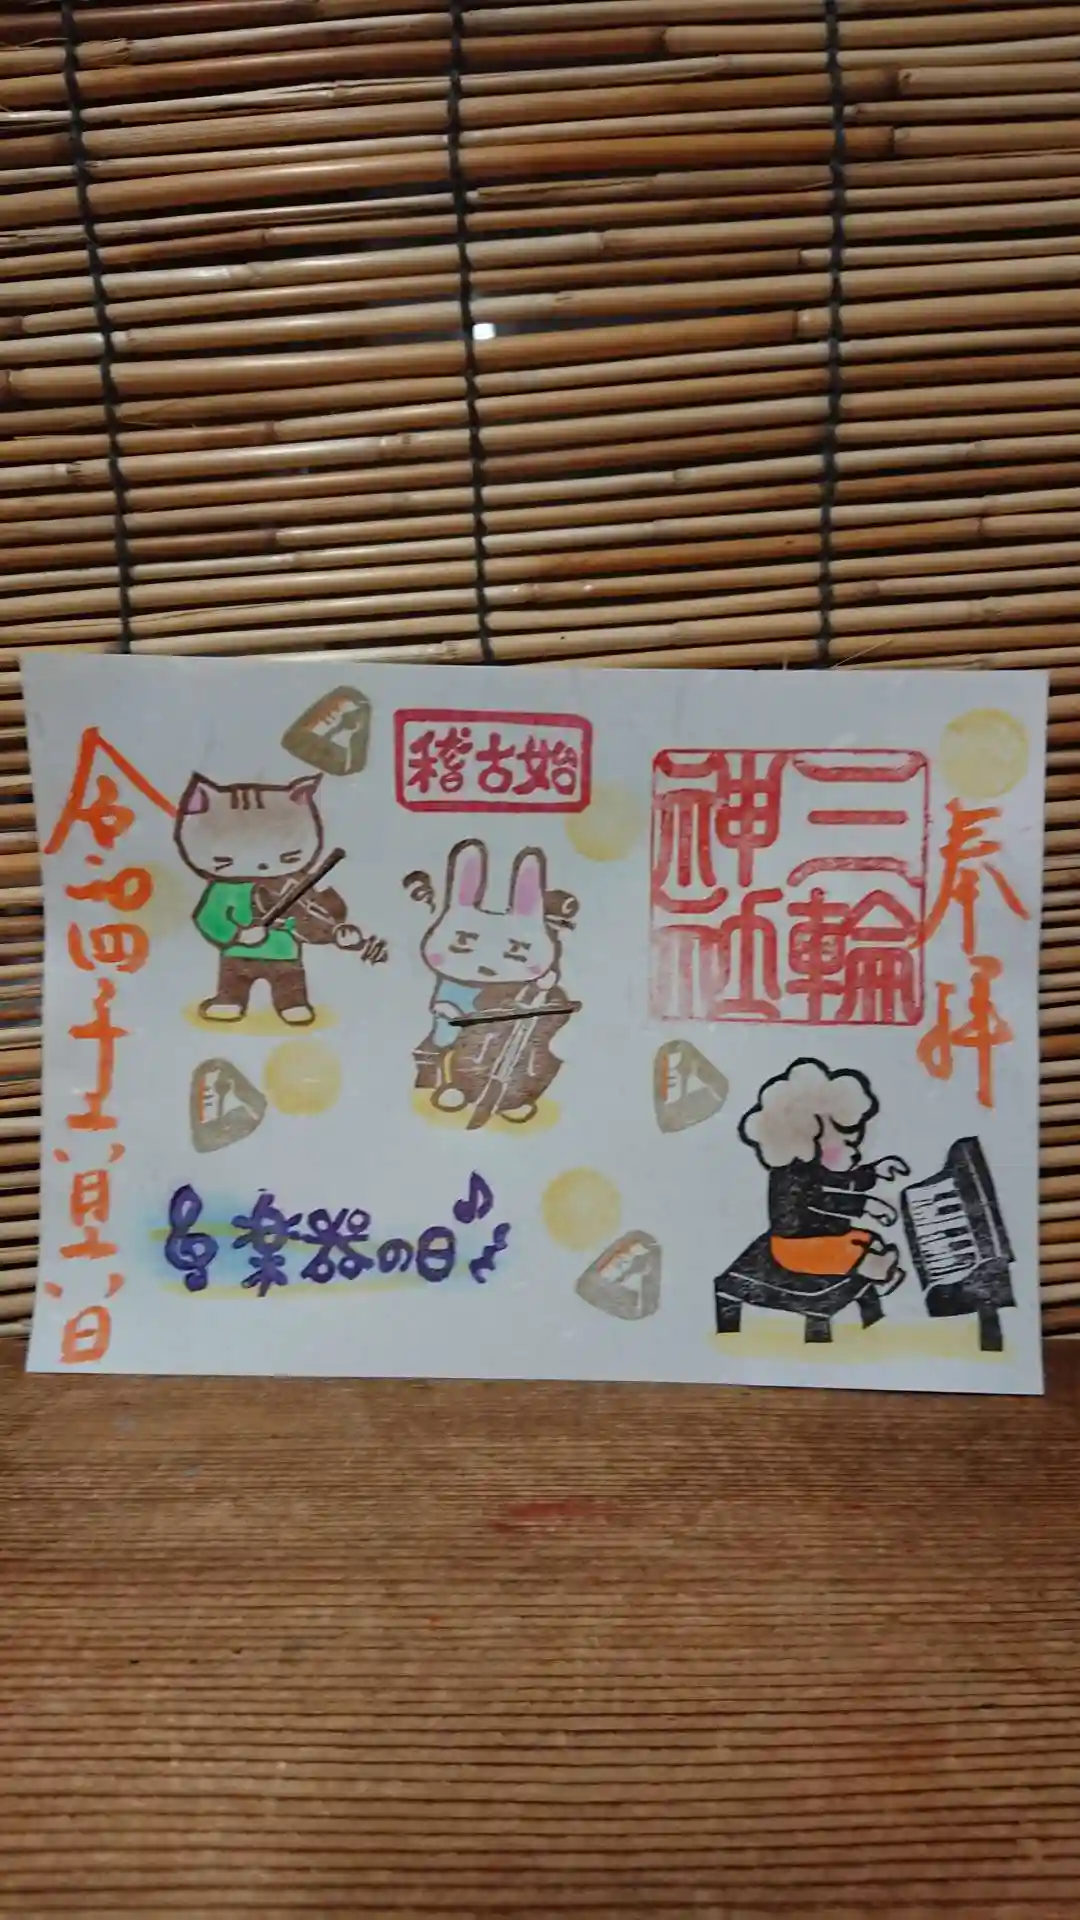 奉拝
三輪
神社
稽古始
楽器の日
令和四年六月六日